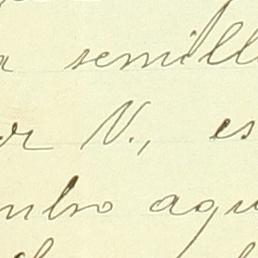 a semill
or N., es
mbro aqu